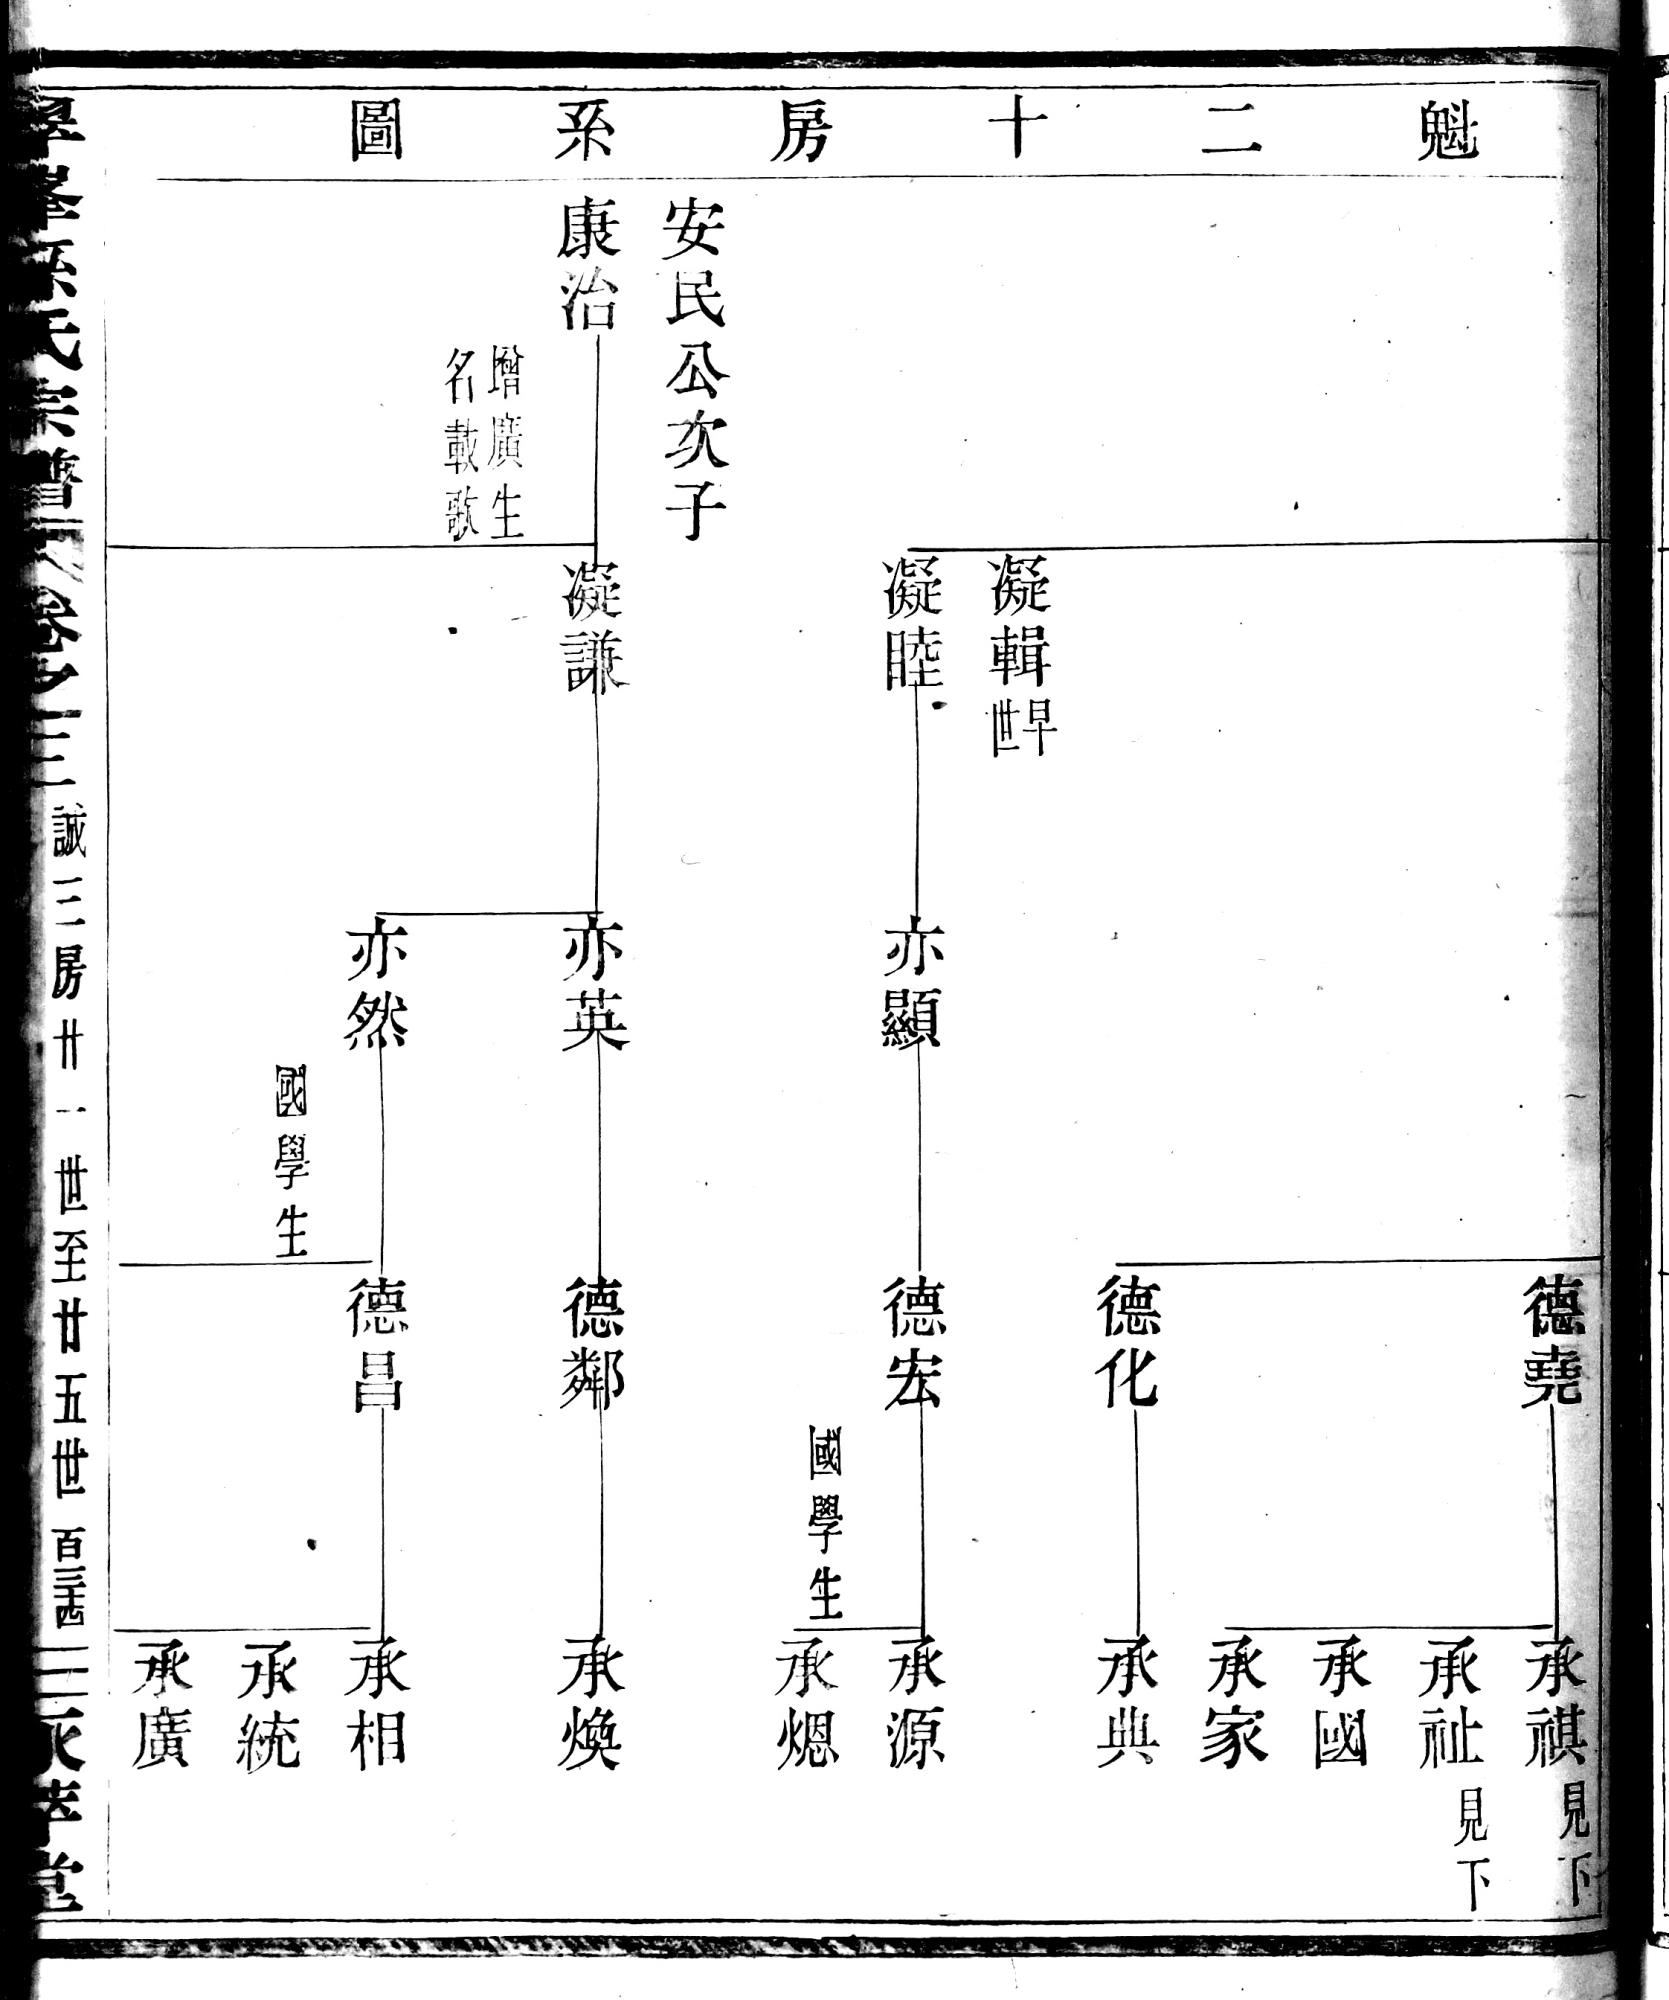 魁二十房系圖
安民公次子
康治
增廣生
名載歌
凝輯
早
世
凝睦
凝謙
亦顯
亦英
亦然
國學生
德堯
德化
德宏
國學生
德鄰
德昌
承祺見下
承祉見下
承國
承家
承典
承源
承煾
承煥
承相
承統
承廣
孫氏宗譜
卷之三
誠三房廿一世至廿五世
百三十四
萃堂